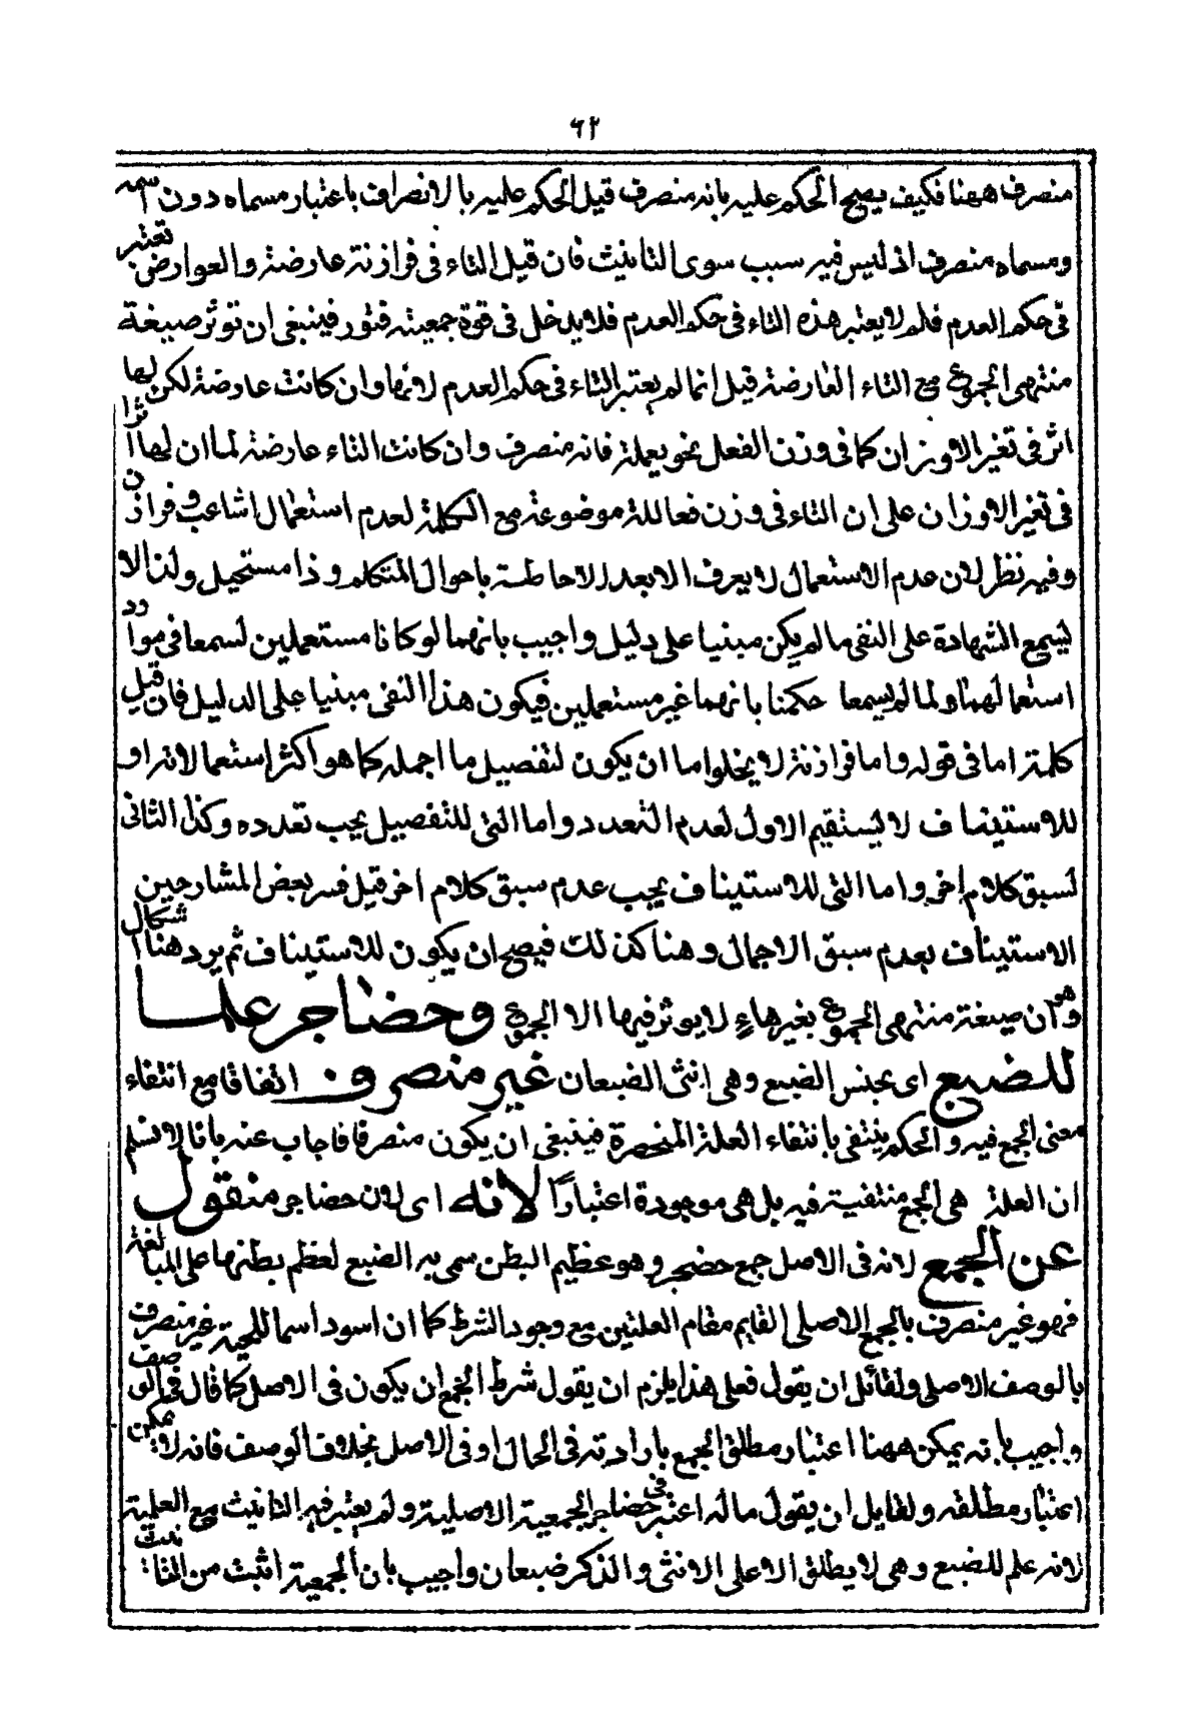 ٦٢
منصرف ههنا فكيف يصح الحكم عليه بانه منصرف قيل الحكم عليه بالانصراف باعتبار مسماه دون اسمه
ومسماه منصرف اذ ليس فيه سبب سوى التانيث فان قيل التاء فى فرازنة عارضة والعوارض تعتبر
فى حكم العدم فلم لا يعتبر هذه التاء فى حكم العدم فلا يدخل فى قوة جمعيته فتور فينبغى ان توثر صيغة
منتهى الجموع مع التاء العارضة قيل انما لم يعتبر التاء فى حكم العدم لانها وان كانت عارضة لكن لها
اثر فى تغير الاوزان كما فى وزن الفعل نحو يعملة فانه منصرف وان كانت التاء عارضة لما ان لها اثرا
فى تغير الاوزان على ان التاء فى وزن فعاللة موضوعة مع الكلمة لعدم استعمال اشاعث وفرازن
وفيه نظر لان عدم الاستعمال لا يعرف الا بعد الاحاطة باحوال المتكلم وذا مستحيل ولذا لا
يسمع الشهادة على النفى ما لم يكن مبنيا على دليل واجيب بانهما لو كانا مستعملين لسمعا فى موارد
استعمالهما ولما لم يسمعا حكمنا بانهما غير مستعملين فيكون هذا النفى مبنيا على الدليل فان قيل
كلمة اما فى قوله واما فرازنة لا يخلوا ما ان يكون لتفصيل ما اجمله كما هو اكثر استعمالاته او
للاستيناف لا يستقيم الاول لعدم التعدد واما التى للتفصيل يجب تعدده وكذا الثانى
لسبق كلام اخر واما التى للاستيناف يجب عدم سبق كلام اخر قيل فسر بعض الشارحين
الاستيناف بعدم سبق الاجمال وهنا كذلك فيصح ان يكون للاستيناف ثم يرد هنا اشكال
وهو ان صيغة منتهى الجموع بغير هاء لا يوثر فيها الا الجموع وحضاجر علما
للضبع اى بجنس الضبع وهى انثى الضبعان غير منصرف اتفاقا مع انتفاء
معنى الجمع فيه والحكم ينتفى بانتفاء العلة المنحصرة فينبغى ان يكون منصرفا فاجاب عنه بانا لا نسلم
ان العلة هى الجمع منتفية فيه بل هى موجودة اعتبارا لانه اى لان حضاجر منقول
عن الجمع لانه فى الاصل جمع حضجر وهو عظيم البطن سمى به الضبع لعظم بطنها على المبالغة
فهو غير منصرف بالجمع الاصلى القايم مقام العلتين مع وجود الشرط كما ان اسود اسما للحية غير منصرف
بالوصف الاصلى ولقائل ان يقول فعلى هذا يلزم ان يقول شرط الجمع ان يكون فى الاصل كما قال فى الوصف
واجيب بانه يمكن ههنا اعتبار مطلق الجمع بارادته فى الحال او فى الاصل بخلاف الوصف فانه لا يمكن
اعتبار مطلقه ولقايل ان يقول ماله اعتبر فى حضاجر الجمعية الاصلية ولم يعتبر فيه التانيث مع العلمية
لانه علم للضبع وهى لا يطلق الا على الانثى والذكر ضبعان واجيب بان الجمعية اثبت من التانيث